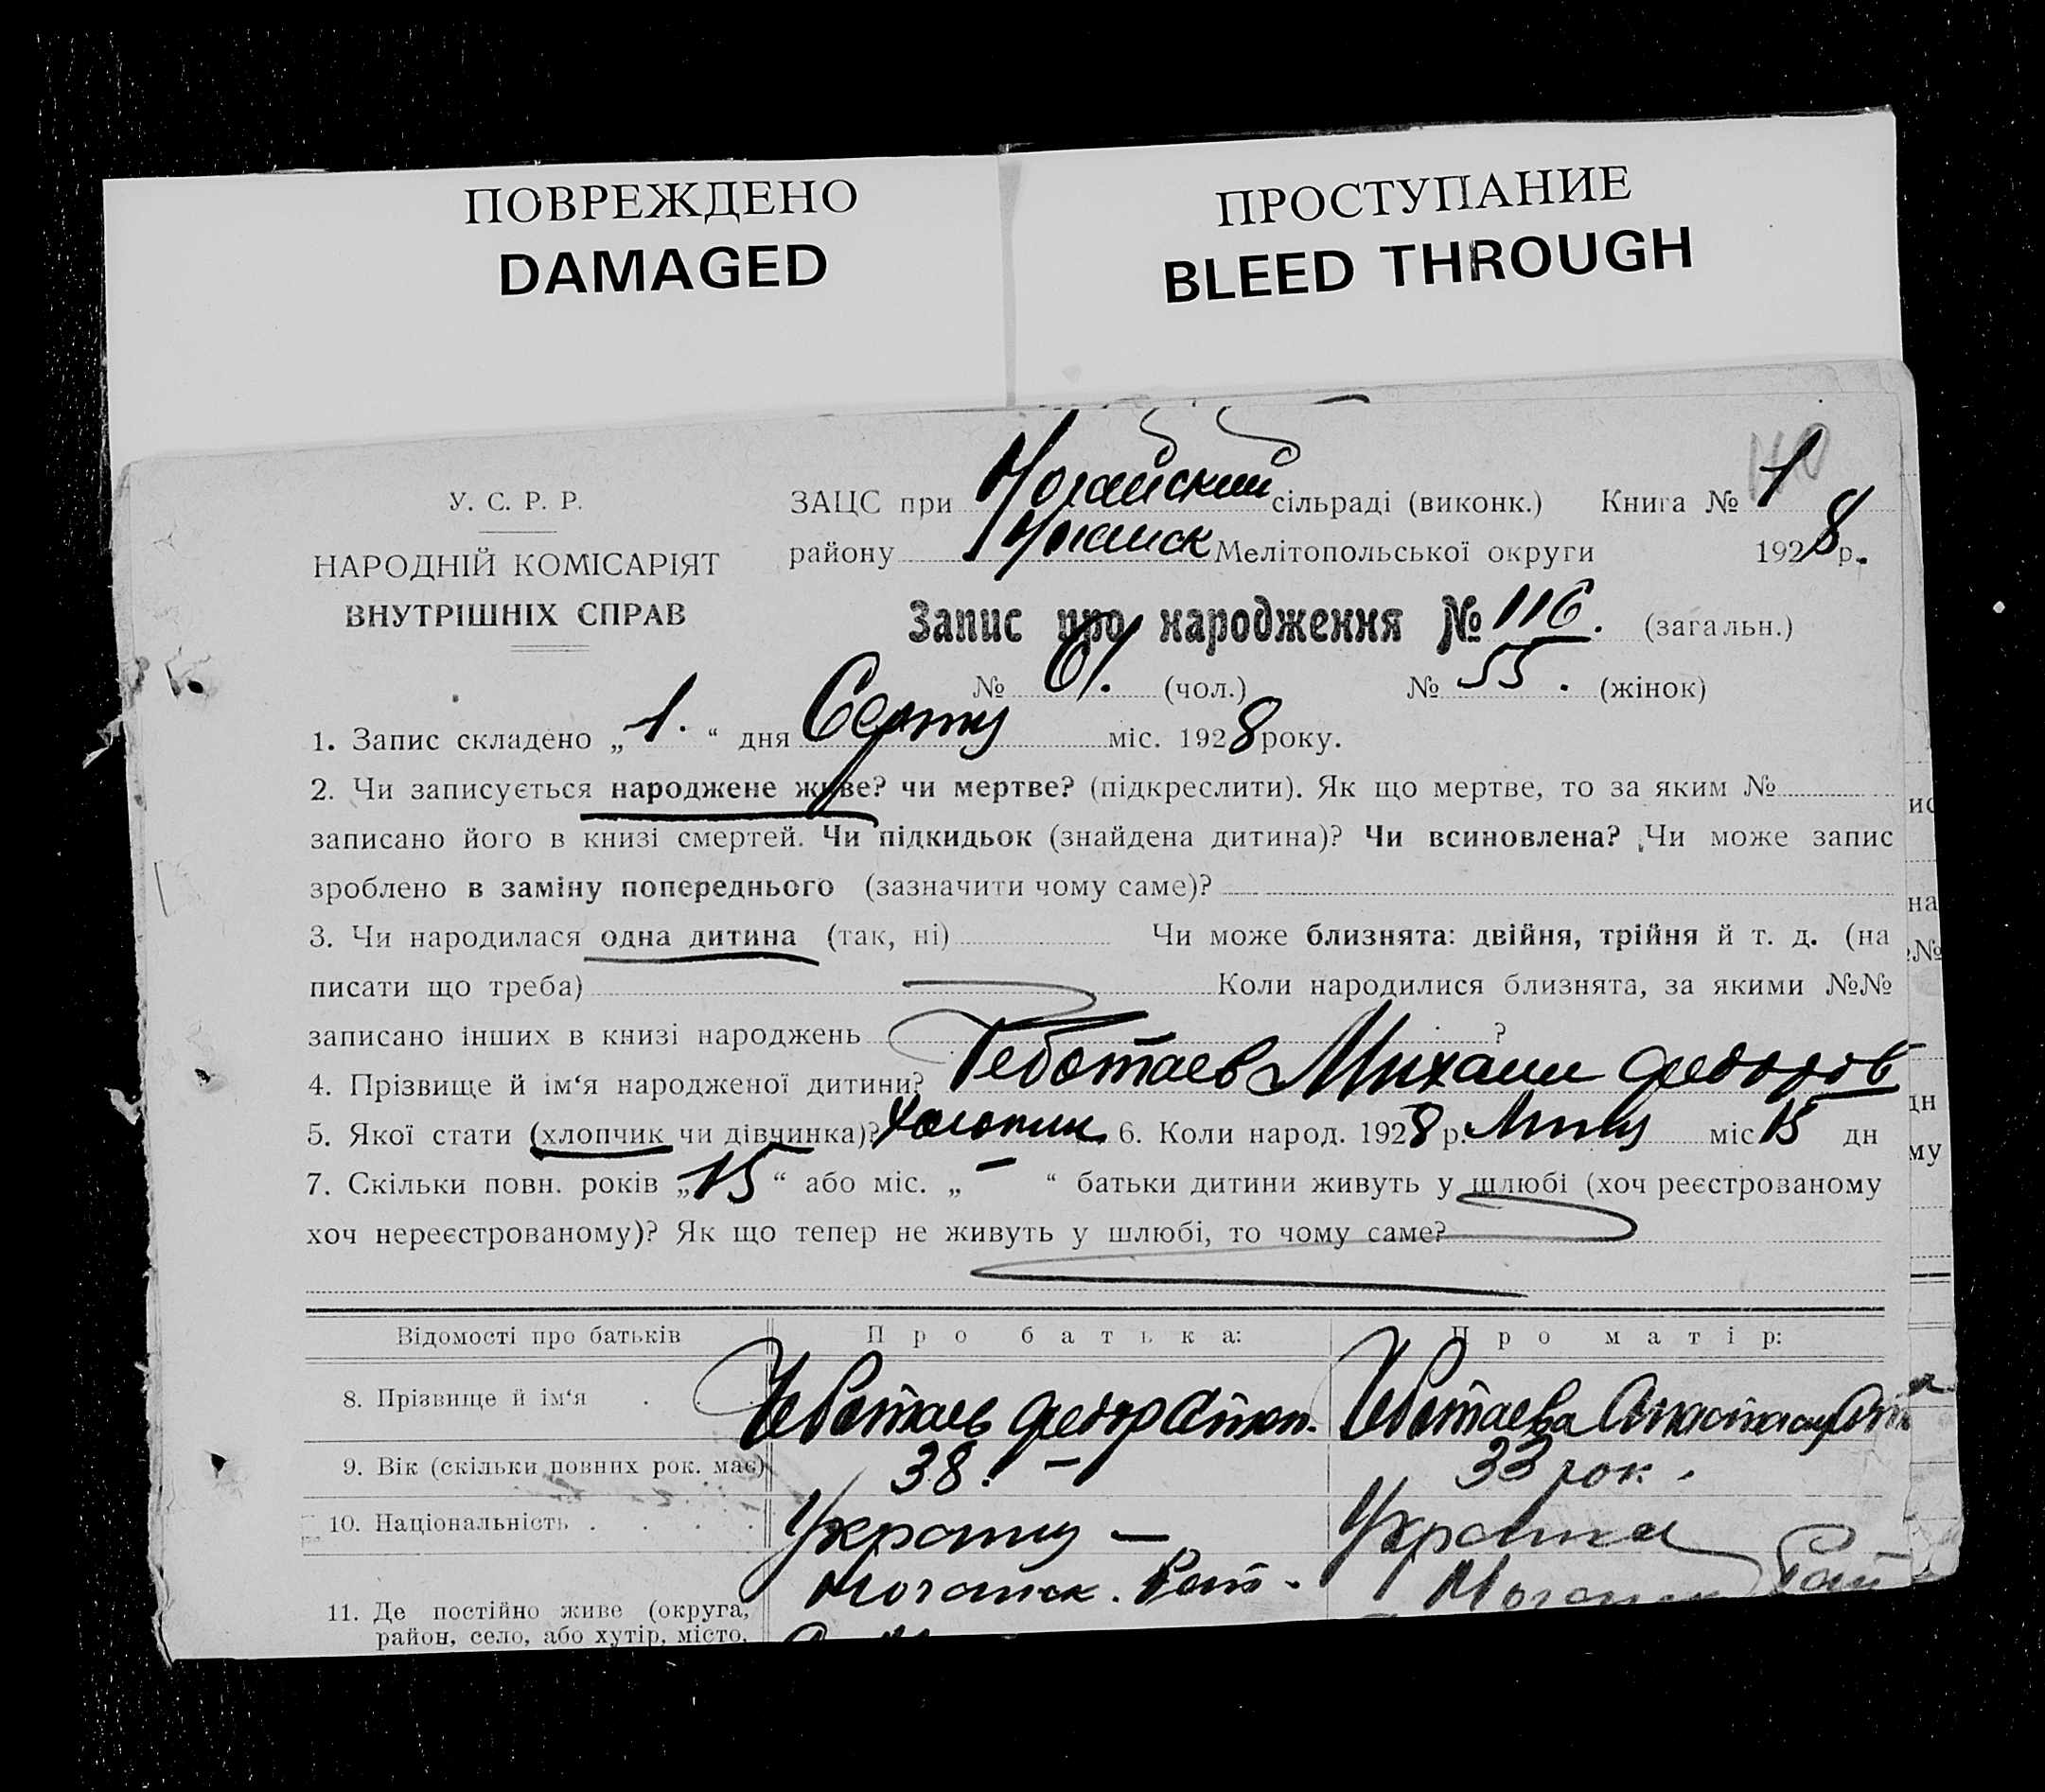 ПОВРЕЖДЕНО
DAMAGED
ПРОСТУПАНИЕ
BLEED THROUGH
У. С. Р. Р.
НАРОДНІЙ КОМІСАРІЯТ
ВНУТРІШНІХ СПРАВ
ЗАЦС при Ногайский сільраді (виконк.) Книга № 1
району Ногайск Мелітопольської округи 1928 р.
Запис про народження № 116. (загальн.)
№ 61. (чол.) № 55. (жінок)
1. Запис складено „1.“ дня Серпня міс. 1928 року.
2. Чи записується народжене живе? чи мертве? (підкреслити). Як що мертве, то за яким №
записано його в книзі смертей. Чи підкидьок (знайдена дитина)? Чи всиновлена? Чи може запис
зроблено в заміну попереднього (зазначити чому саме)?
3. Чи народилася одна дитина (так, ні) Чи може близнята: двійня, трійня й т. д. (на
писати що треба) Коли народилися близнята, за якими №№
записано інших в книзі народжень ?
4. Прізвище й ім‘я народженої дитини? Чеботаев Михаил Федоров
5. Якої стати (хлопчик чи дівчинка)? Хлопчик 6. Коли народ. 1928 р. Липня міс 15 дн
7. Скільки повн. років „15“ або міс. „–“ батьки дитини живуть у шлюбі (хоч реєстрованому
хоч нереєстрованому)? Як що тепер не живуть у шлюбі, то чому саме?
Відомості про батьків Про батька: Про матір:
8. Прізвище й ім‘я . . Чеботаев Федор Степ. Чеботаева Анастасия
9. Вік (скільки повних рок. має) 38. – 33 рок.
10. Національність . . . . Украинц – Украинка
11. Де постійно живе (округа, Ногайск. Район Ногайск Район
район, село, або хутір, місто,